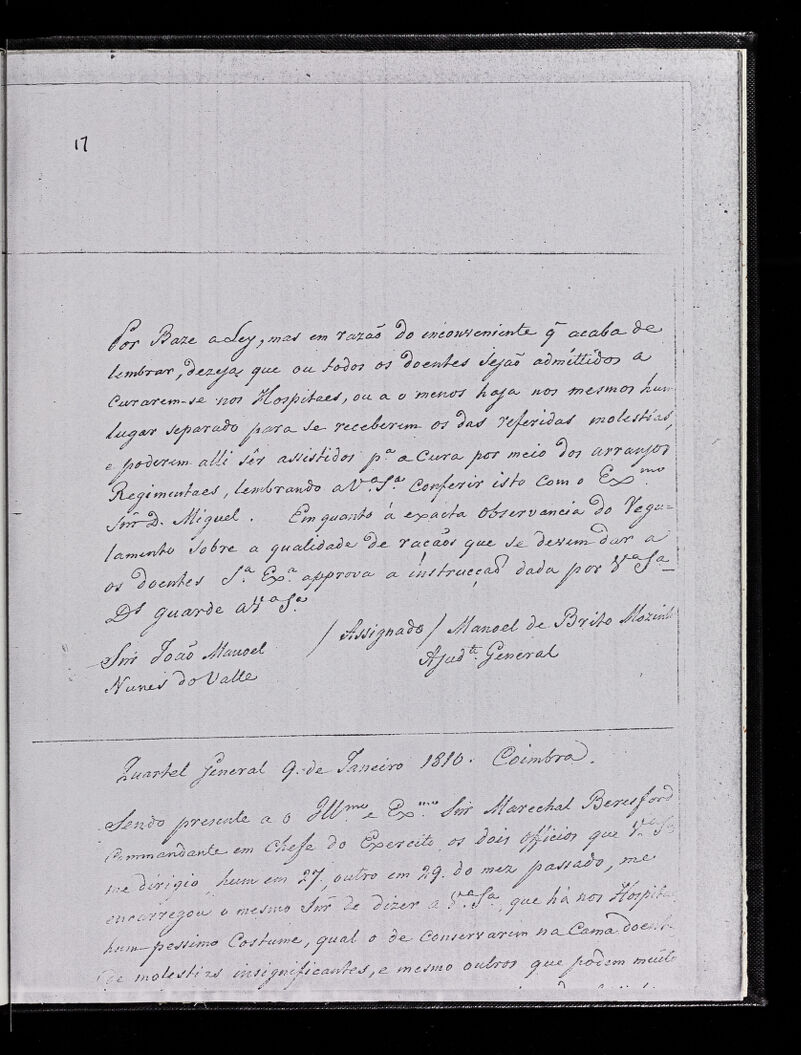 17
Por Baze a Ley, mas em razaõ do inconveniente q̃ acaba de
lembrar, dezeja, que ou todos os doentes sejaõ admíttidos a
Curarem-se nos Hospitaes, ou a o menos haja nos mesmos hum
lugar separado para se receberem os das referidas molestias,
e poderem alli sêr assistidos p.ª a Cura por meio dos arranjos
Regimentaes, lembrando a V.ª S.ª Conferir isto com o Ex.mo
Snr̃ D. Miguel. Em quanto á exacta observancia do Regu-
lamento sobre a qualidade de raçaõs que se devem dar a
os doentes S.ª Ex.ª approva a instrucçaõ dada por V.ª S.ª
D.s guarde a V.ª S.ª
/ Assignado / Manoel de Brito Mozinh
Snr̃ João Manoel
Ajud.te General
Nunes do Valle
Quartel General 9. de Janeiro 1810. Coimbra.
Sendo presente a o Ill.mo e Ex.mo Snr̃ Marechal Beresford
Commandante em Chefe do Exercito, os dois officios que V.ª S.ª
me dirigio, hum em 27, outro em 29. do mez passado, me
encarregou o mesmo Snr̃ de dizer a V.ª S.ª, que há nos Hospitaes
hum pessimo Costume, qual o de Conservarem na Cama doent
de molestias insignificantes, e mesmo outros que podem muito